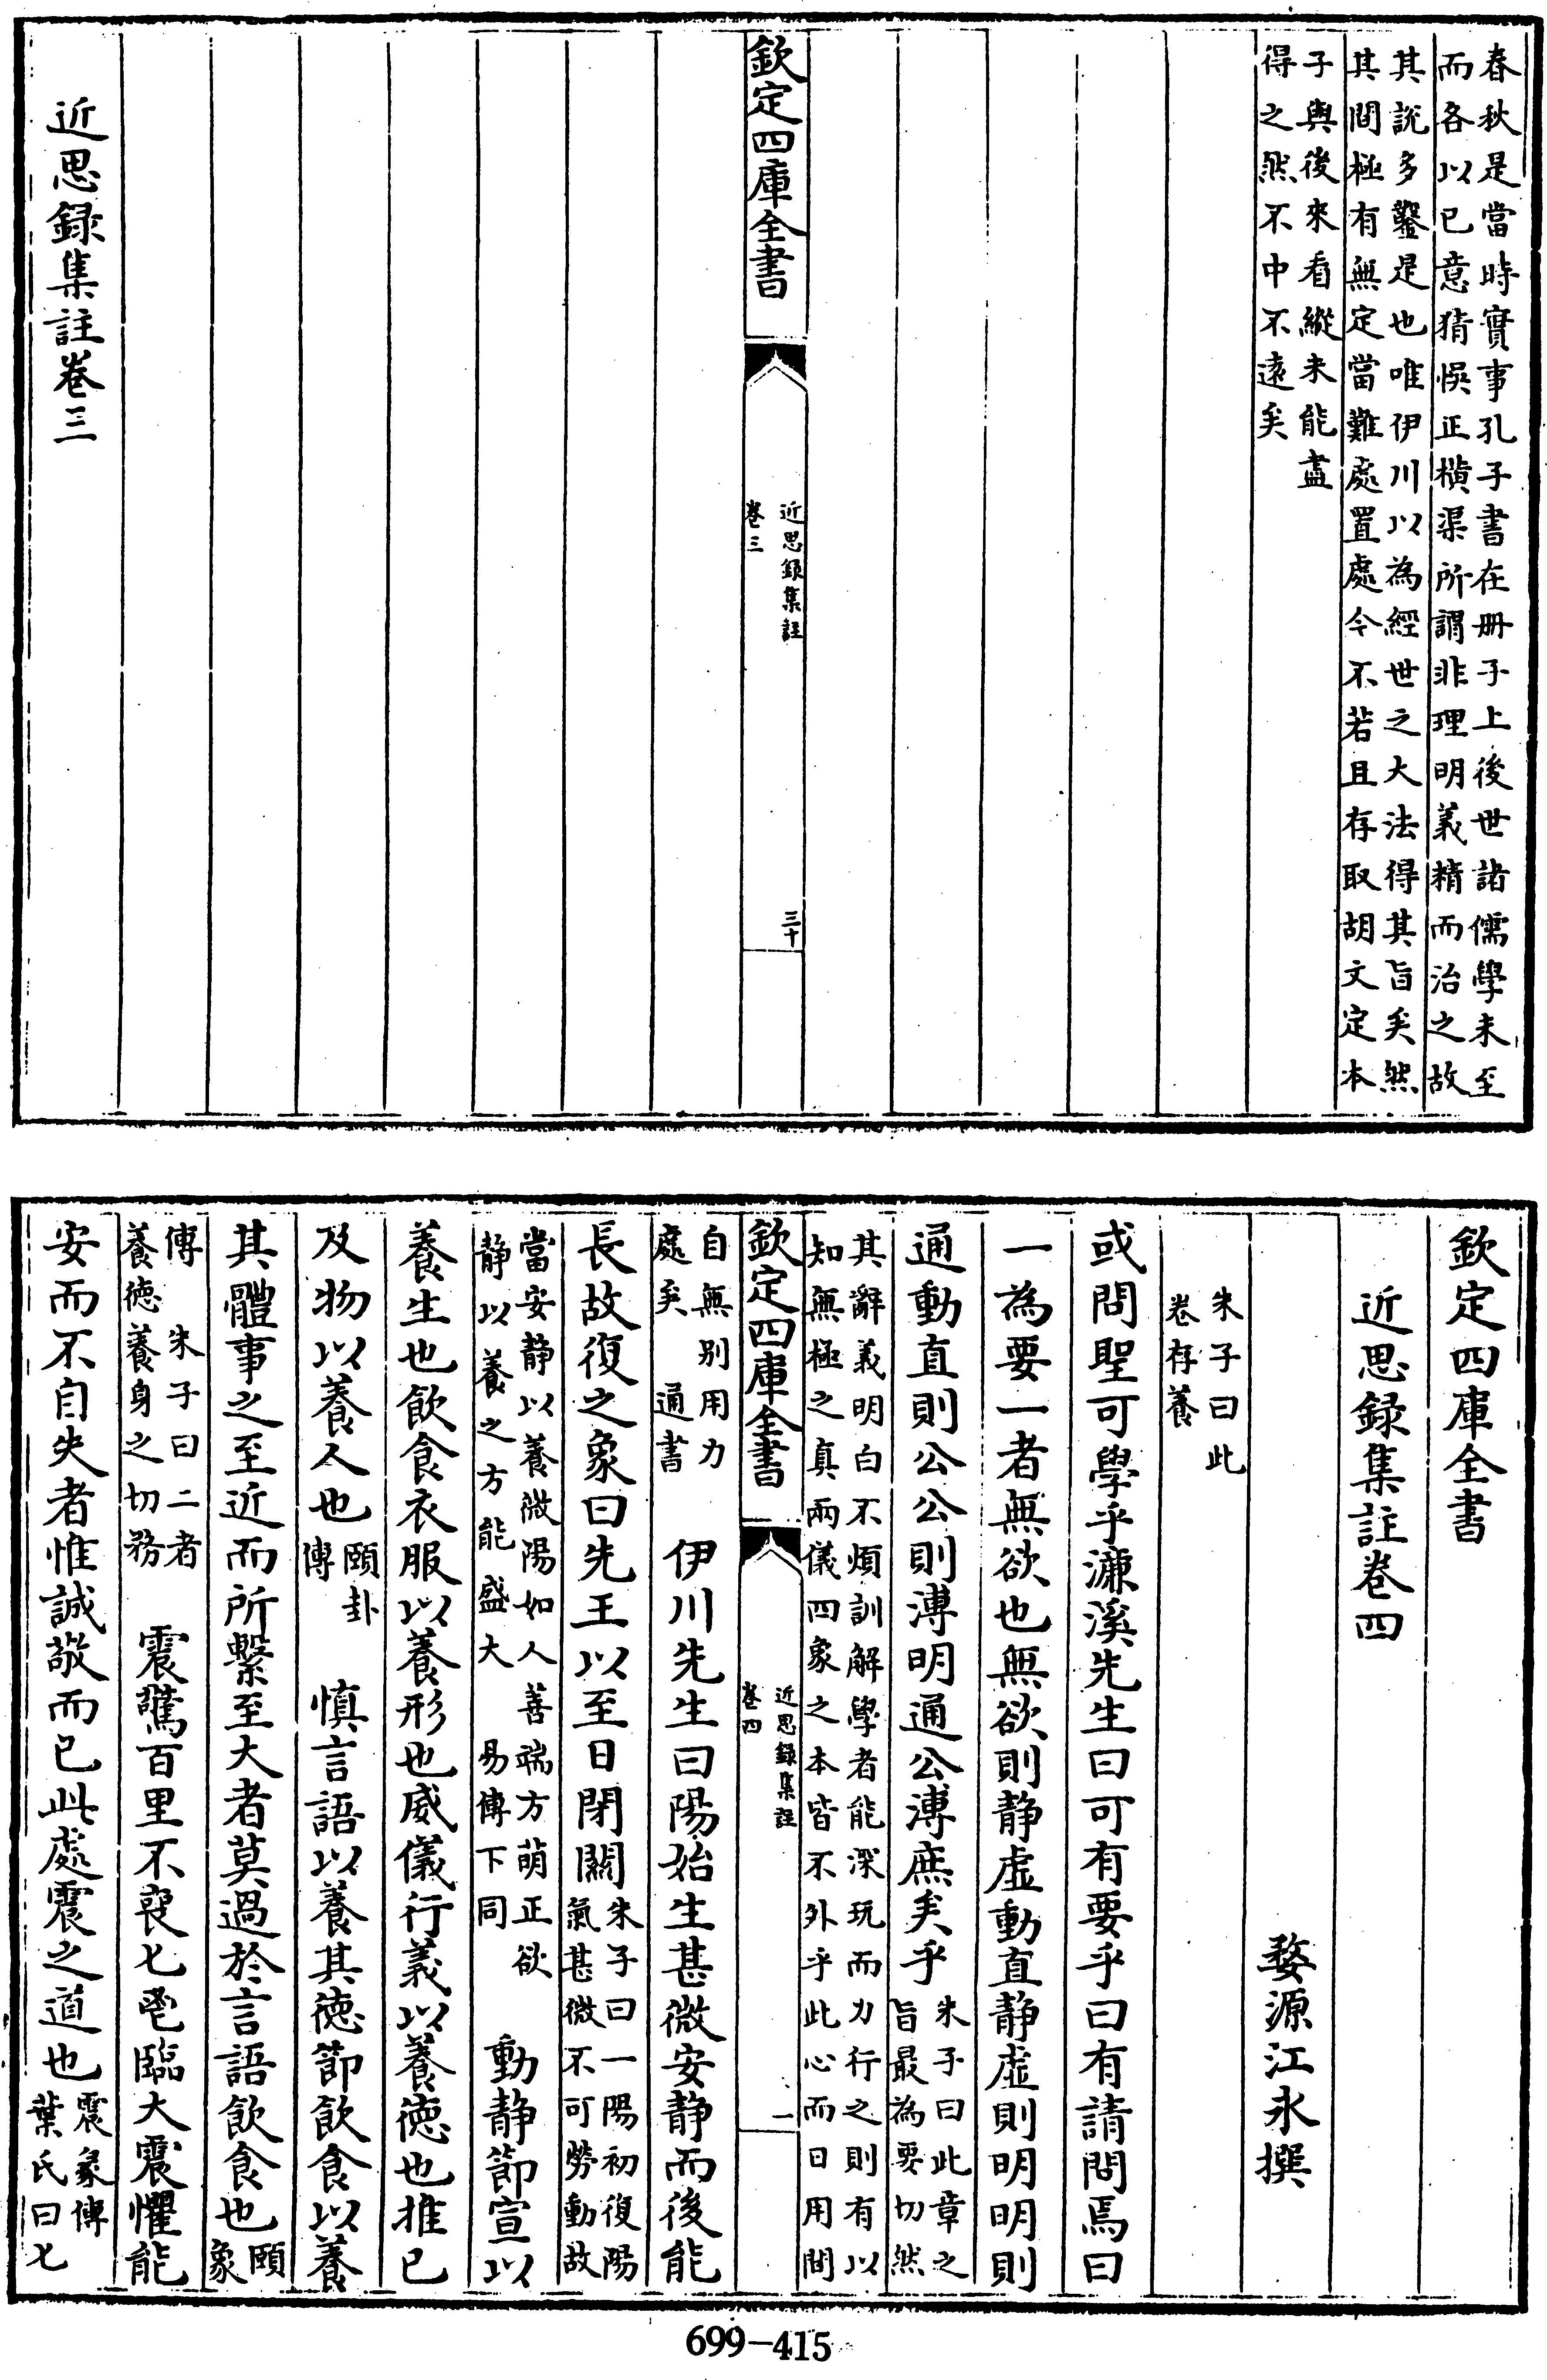 春秋是當時實事孔子書在冊子上後世諸儒學未至
而各以已意猜悞正横渠所謂非理明義精而治之故
其說多鑿是也唯伊川以為經世之大法得其旨矣然
其間極有無定當難處置處今不若且存取胡文定本
子與後來看縱未能盡
得之然不中不遠矣
欽定四庫全書
近思録集註
卷三
三十
近思録集註卷三
欽定四庫全書
近思録集註卷四
婺源江永撰
朱子曰此
卷存養
或問聖可學乎濂溪先生曰可有要乎曰有請問焉曰
一為要一者無欲也無欲則静虛動直静虛則明明則
通動直則公公則溥明通公溥庶矣乎
朱子曰此章之
旨最為要切然
其辭義明白不煩訓解學者能深玩而力行之則有以
知無極之真兩儀四象之本皆不外乎此心而日用間
欽定四庫全書
近思録集註
卷四
一
自無别用力
處矣 通書
伊川先生曰陽始生甚微安静而後能
長故復之象曰先王以至日閉關
朱子曰一陽初復陽
氣甚微不可勞動故
當安静以養微陽如人善端方萌正欲
静以養之方能盛大 易傳下同
動静節宣以
養生也飲食衣服以養形也威儀行義以養德也推己
及物以養人也
頤卦
傳
慎言語以養其德節飲食以養
其體事之至近而所繫至大者莫過於言語飲食也
頤
象
傳 朱子曰二者
養德養身之切務
震驚百里不喪匕鬯臨大震懼能
安而不自失者惟誠敬而已此處震之道也
震彖傳
葉氏曰匕
699-415